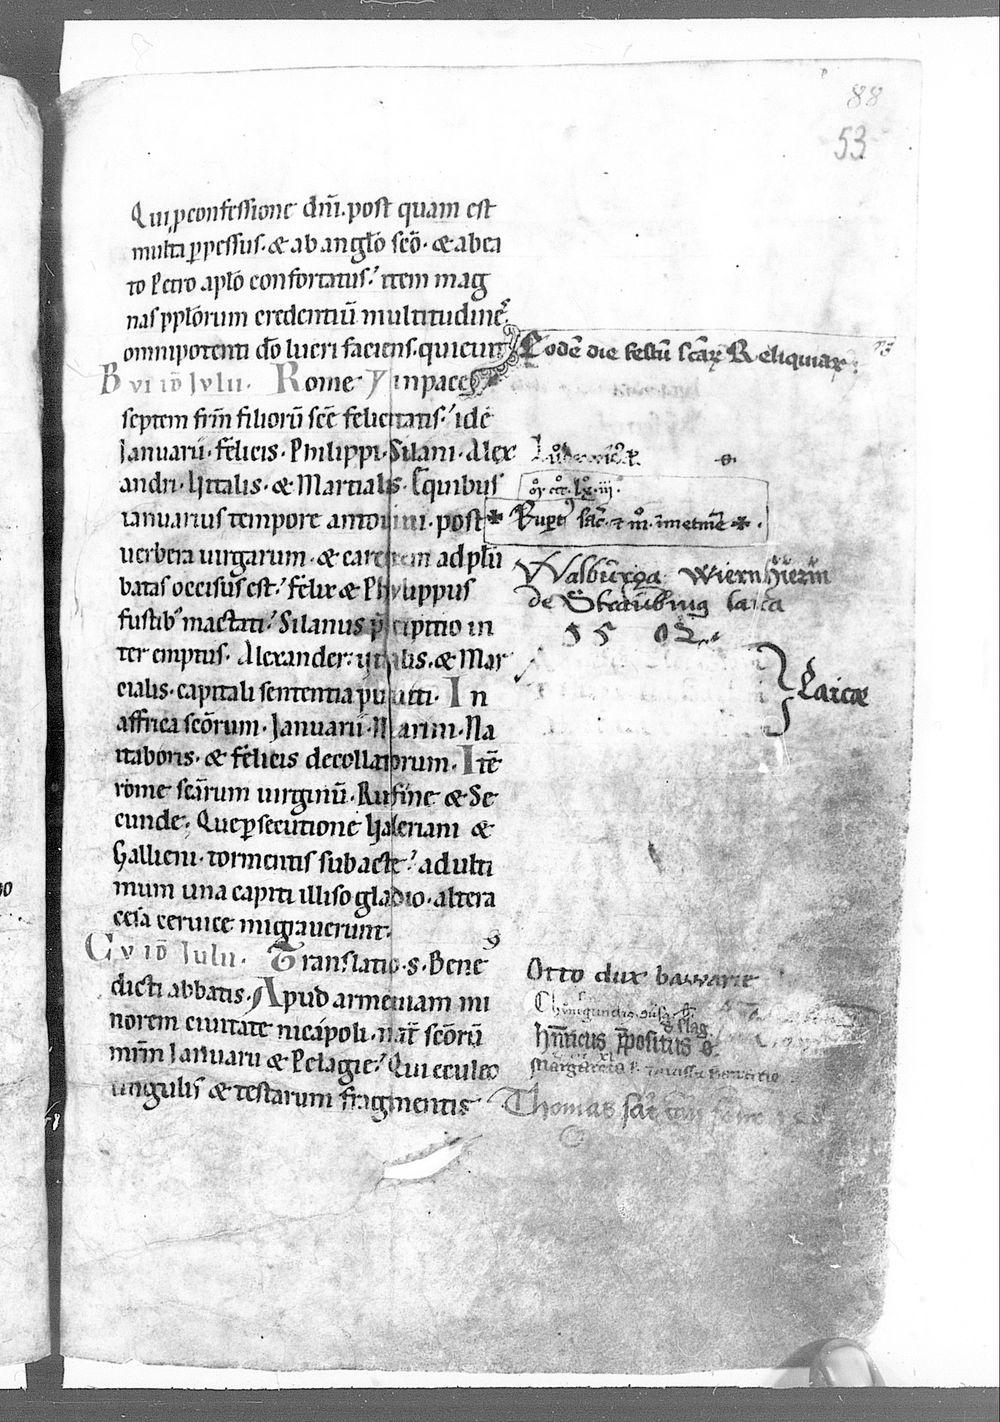 88
53
Qui p confessione dñi. post quam est
multa ppessus. & ab anglo sco. & a bea
to Petro aplo confortatus. item mag
nas pplorum credentiu multitudine
omnipotenti do lucri faciens. quieuit
in pace
Eode die festu scar Reliquiar
B vi id Ivlii. Rome
septem frm filiorū sce felicitatis. ide
Ianuarii. felicis. Philippi. Silani. Alex
andri. Vitalis. & Martialis. E quibus
ianuarius tempore antonini. post
uerbera uirgarum. & carcerem ad plū
batas occisus est. felix & Phylippus
fustib' mactati. Silanus pcipitio in
teremptus. Alexander. uitalis. & Mar
cialis. capitali sententia puniti. In
affrica scorum. Ianuarii. Marini. Na
itaboris. & felicis decollatorum. Ite
rome scarum uirginū. Rufine & Se
cunde. Que psecutione Valeriani &
Gallieni. tormentis subacte. ad ulti
mum una capiti illiso gladio. altera
cesa ceruice migrauerunt.
C v id Iulii. Translatio. s. Bene
dicti abbatis. Apud armeniam mi
norem ciuitate nicapoli. nat scorū
mrm Ianuarii & Pelagie. Qui eculeo
ungulis & testarum fragmentis
lx. iii.
Rupt' sac. t m. i metme
Walburga Wiernhierin
de Straubing laica
15 02
Laicae
Otto dux bawarie
Chunigundis
hnricus ppositus o.
Margareta
Thomas sac